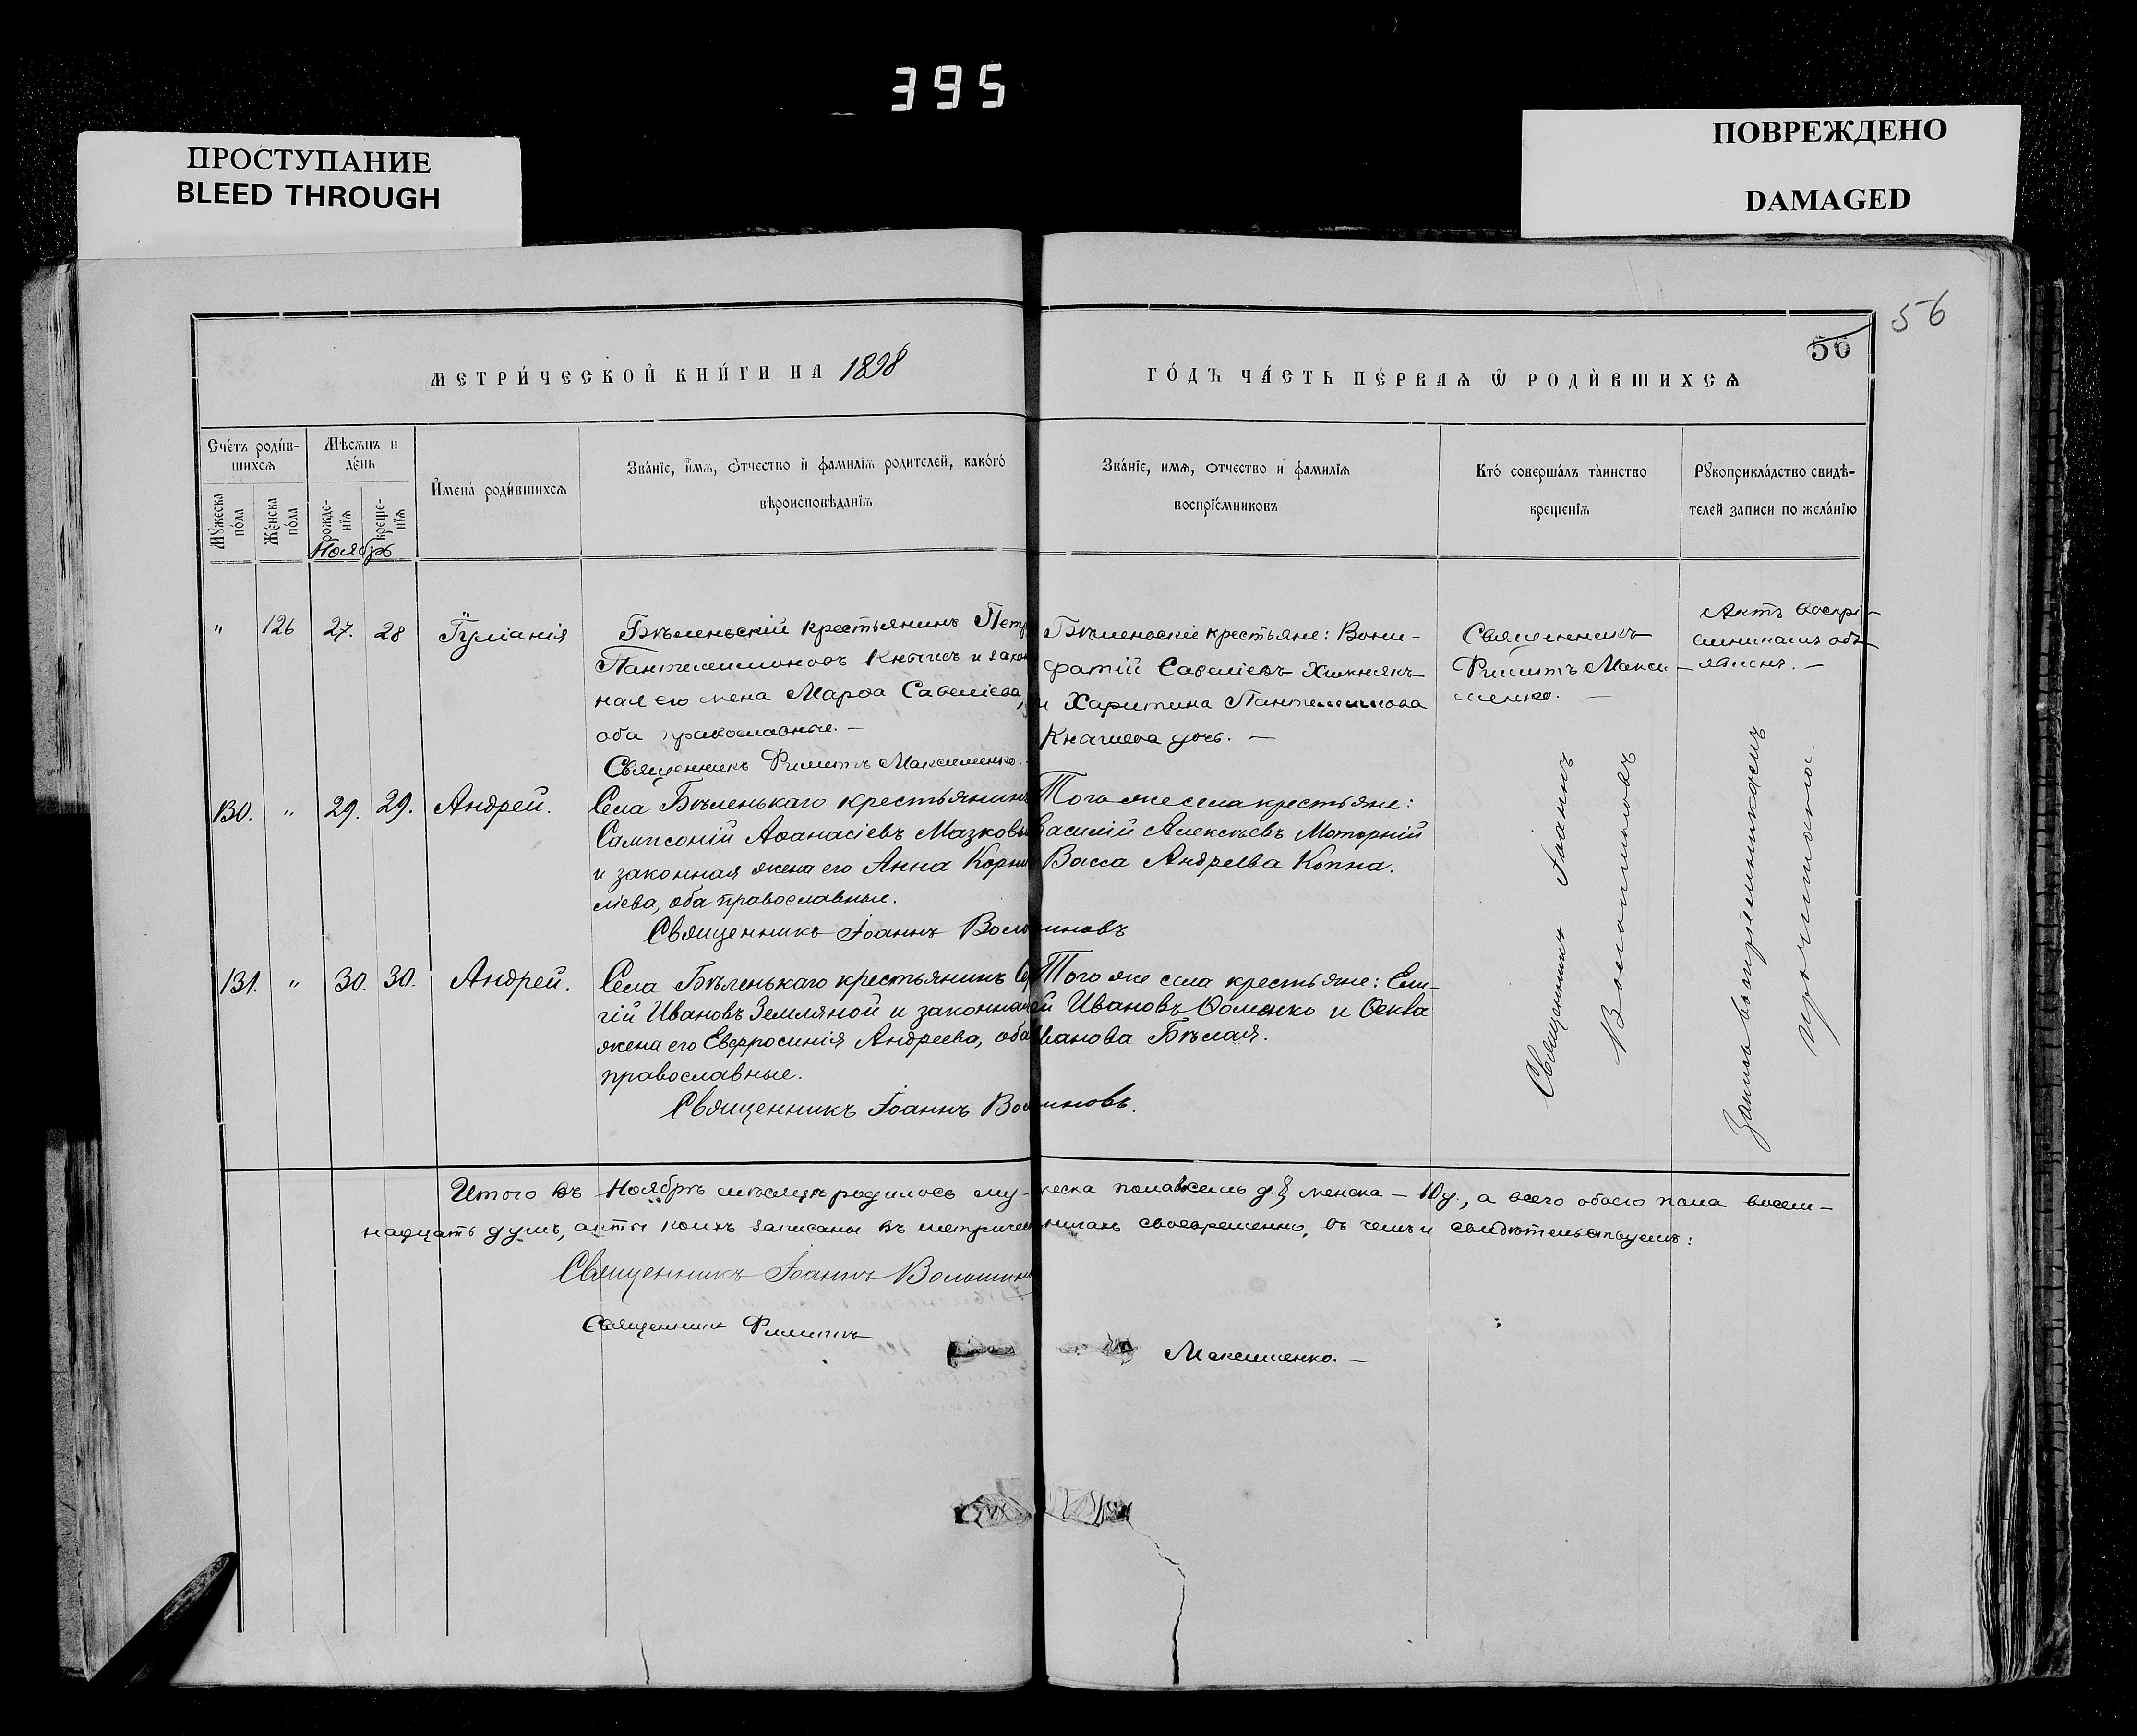 395
ПРОСТУПАНИЕ
BLEED THROUGH
ПОВРЕЖДЕНО
DAMAGED
56
56
МЕТРИ́ЧЕСКОЙ КНИ́ГИ НА 1898
ГО́ДЪ ЧА́СТЬ ПЕ́РВАѦ Ѿ РОДИ́ВШИХСѦ
Сче́тъ роди́в-
шихсѧ
Мѣсѧцъ и
де́нь
Мꙋжеска
по́ла
Же́нска
по́ла
рожде-
нїѧ
креще-
нїѧ
Ноябрь
Имена́ роди́вшихсѧ
Зва́нїе, и́мѧ, ѻ҆тчество и҆ фамилїѧ родителей, како́гѡ
вѣроисповѣданїѧ
Зва́нїе, имѧ, ѻтчество и҆ фамилїѧ
воспрїе́мниковъ
Кто́ совершалъ та́инство
креще́нїѧ
Рꙋкоприкла́дство свидѣ-
телей записи по жела́нїю
" 126 27. 28 Іуліанія
Бѣленьскій крестьянинъ Петр
Пантелеимоновъ Кнышъ и закон
ная его жена Марѳа Савеліева,
оба православные. —
Священникъ Филиппъ Максименко.
Бѣленьскіе крестьяне: Вони-
фатій Савеліевъ
и Харитина Пантелеимова
дочь. —
Священникъ
Филиппъ Макси-
менко. —
Актъ воспрі-
емникамъ объ-
явленъ. —
130. " 29. 29. Андрей.
Села Бѣленькаго крестьянинъ
Сампсоній Аѳанасіевъ Мазковы
и законная жена его Анна Корни
ліева, оба православные.
Священникъ Іоаннъ Волошиновъ
Того же села крестьяне:
Василій Алексѣевъ Моторній
Васса Андреева Коппа.
131. " 30. 30. Андрей.
Села Бѣленькаго крестьянинъ Сер
гій Ивановъ Земляной и законная
жена его Евфросинія Андреева, оба
православные.
Священникъ Іоаннъ Волошиновъ.
Того же села крестьяне: Ели-
сей Ивановъ Ѳоменко и Ѳекла
Иванова Бѣлая.
Священникъ Іоаннъ
Волошиновъ
Запись воспріемникамъ
прочитана.
Итого въ Ноябрѣ мѣсяцѣ родилось му-
жеска пола восемь д., женска — 10 д., а всего обоего пола восем-
надцать душъ, акты коихъ записаны въ метричес
книгахъ своевременно, въ чемъ и свидѣтельствуемъ:
Священникъ Іоаннъ Волошинов
Священникъ Филиппъ
Максименко. —